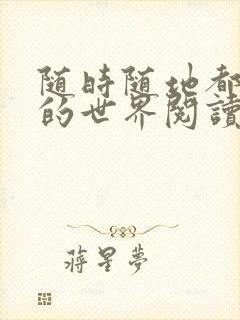 随時随地都
的世界閱讀
蔣星夢